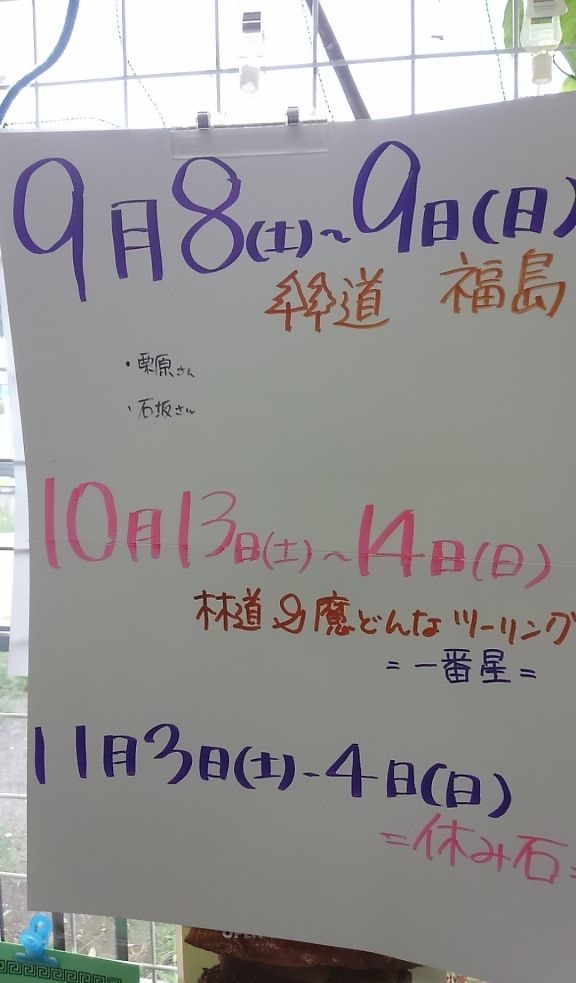 9月8(土)~9日(日)
林道 福島
・栗原さん
・石坂さん
10月13日(土)~14日(日)
林道 & 魔どんなツーリング
=一番星=
11月3日(土)-4日(日)
=休み石=